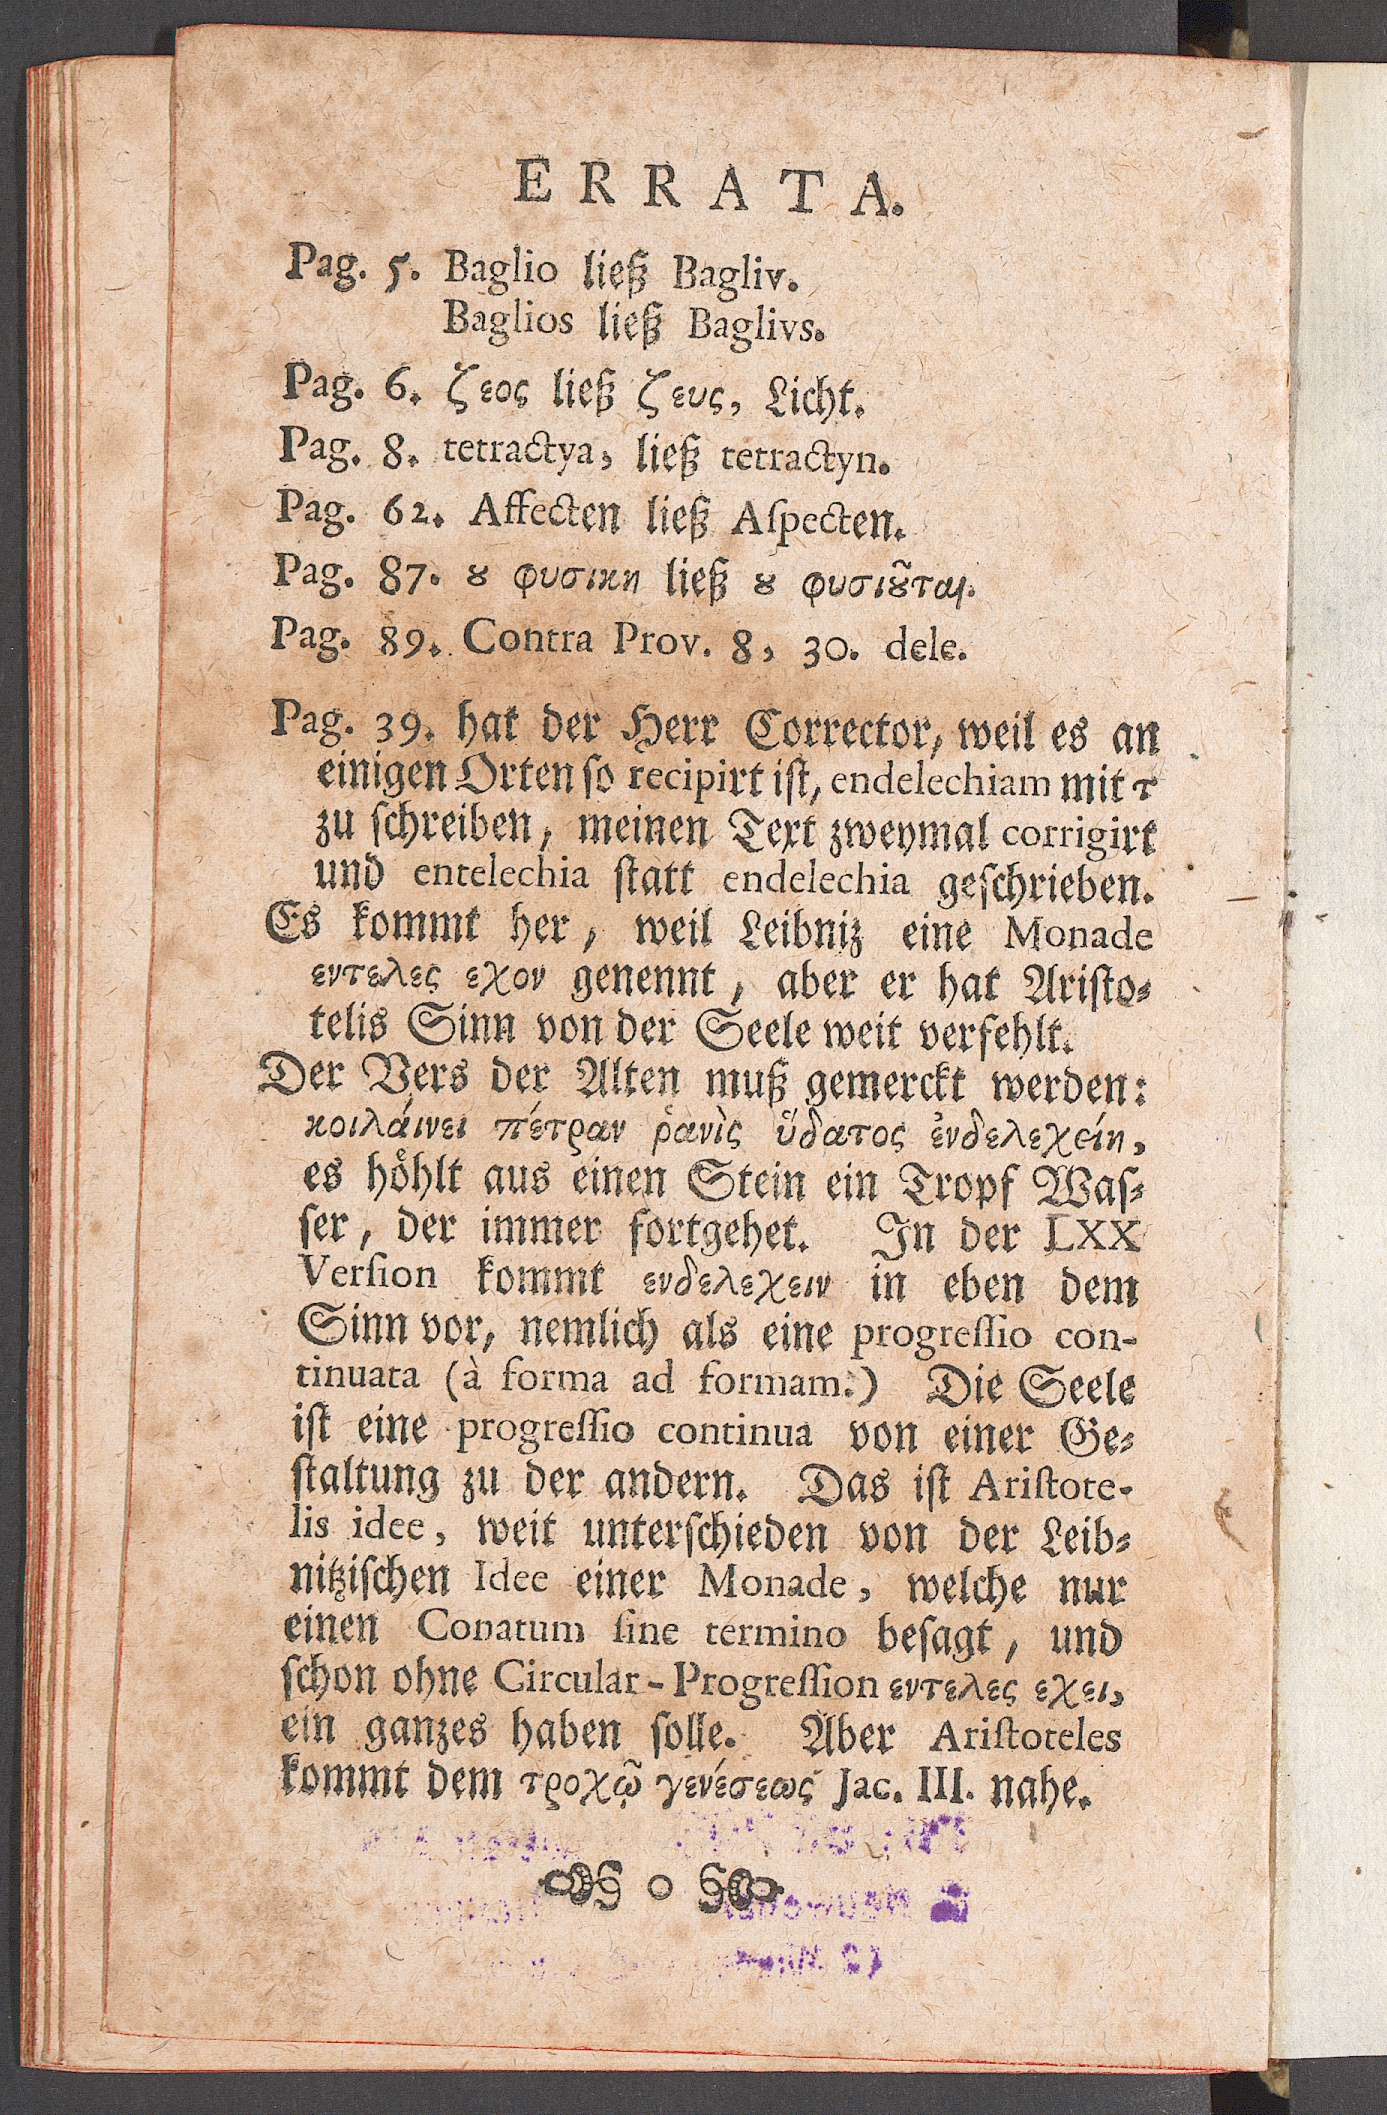 ERRATA.
Pag. 5. Baglio ließ Bagliv.
Baglios ließ Baglivs.
Pag. 6. ζεος ließ ζευς, Licht.
Pag. 8. tetractya, ließ tetractyn.
Pag. 62. Affecten ließ Aſpecten.
Pag. 87. ȣ φυσικη ließ ȣ φυσιȣ͂ται.
Pag. 89. Contra Prov. 8, 30. dele.
Pag. 39. hat der Herr Corrector, weil es an
einigen Orten ſo recipirt iſt, endelechiam mit τ
zu ſchreiben, meinen Text zweymal corrigirt
und entelechia ſtatt endelechia geſchrieben.
Es kommt her, weil Leibniz eine Monade
εντελες εχον genennt, aber er hat Ariſto⸗
telis Sinn von der Seele weit verfehlt.
Der Vers der Alten muß gemerckt werden:
κοιλάινει πέτραν ῥανὶς ὕδατος ἐνδελεχείη,
es hoͤhlt aus einen Stein ein Tropf Waſ⸗
ſer, der immer fortgehet. In der LXX
Verſion kommt ενδελεχειν in eben dem
Sinn vor, nemlich als eine progreſſio con-
tinuata (à forma ad formam.) Die Seele
iſt eine progreſſio continua von einer Ge⸗
ſtaltung zu der andern. Das iſt Ariſtote-
lis idee, weit unterſchieden von der Leib⸗
nitziſchen Idee einer Monade, welche nur
einen Conatum ſine termino beſagt, und
ſchon ohne Circular-Progreſſion εντελες εχει,
ein ganzes haben ſolle. Aber Ariſtoteles
kommt dem τροχῷ γενέσεως Jac. III. nahe.